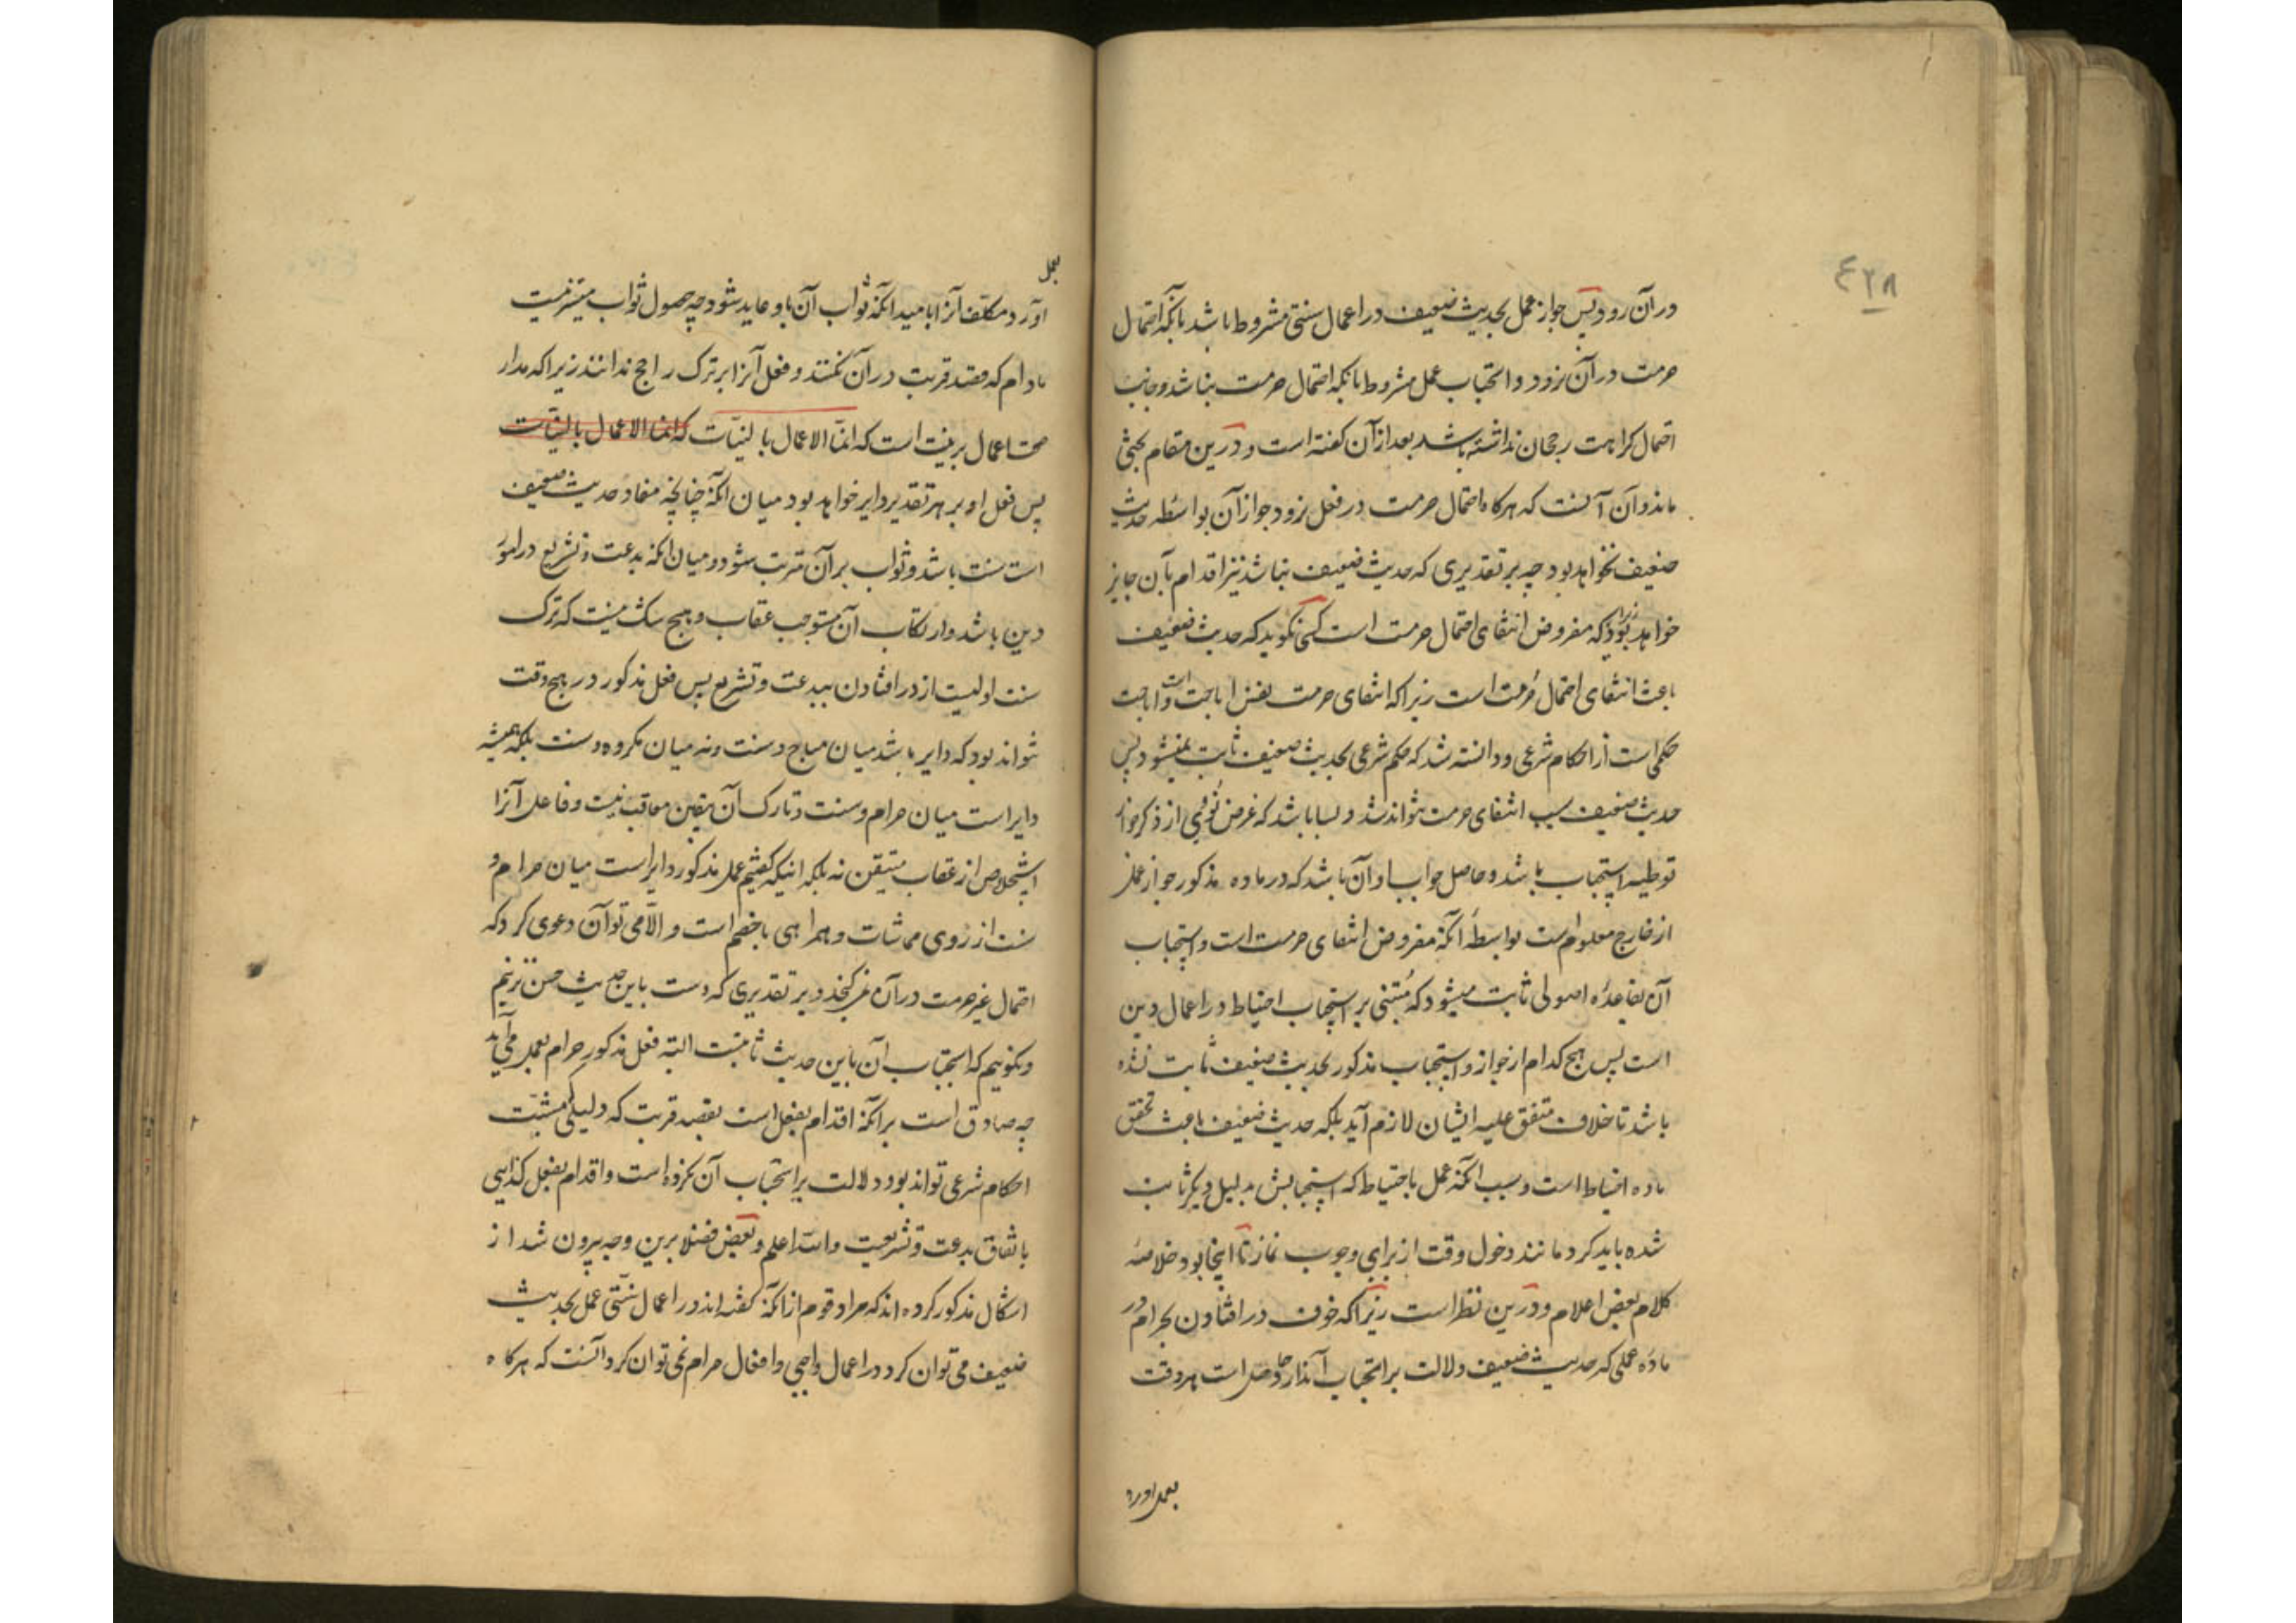 ۴۲۸
در آن رود پس جواز عمل بحدیث ضعیف در اعمال سنتی مشروط باشد بآنکه احتمال
حرمت در آن نرود و استحباب عمل مشروط بآنکه احتمال حرمت نباشد و جانب
احتمال کراهت رجحان نداشته باشد بعد از آن کفته است و درین مقام بحثی
ماند و آن آنست که هرکاه احتمال حرمت در فعل نرود جواز آن بواسطه حدیث
ضعیف نخواهد بود چه بر تقدیری که حدیث ضعیف نباشد نیز اقدام بآن جایز
خواهد بود زیرا که مفروض انتفای احتمال حرمت است کسی نکوید که حدیث ضعیف
باعث انتفای احتمال حرمت است زیرا که انتفای حرمت نفس اباحت است و اباحت
حکمی است از احکام شرعی و دانسته شد که حکم شرعی بحدیث ضعیف ثابت نمیشود پس
حدیث ضعیف سبب انتفای حرمت نتواند شد و بسا باشد که غرض نووی از ذکر جواز
توطیه استحباب باشد و حاصل جواب او آن باشد که در ماده مذکور جواز عمل
از خارج معلوم است بواسطه آنکه مفروض انتفای حرمت است و استحباب
آن بقاعده اصولی ثابت میشود که مبتنی بر استحباب احتیاط در اعمال دین
است پس هیچ کدام از جواز و استحباب مذکور بحدیث ضعیف ثابت نشده
باشد تا خلاف متفق علیه ایشان لازم آید بلکه حدیث ضعیف باعث تحقق
ماده احتیاط است و سبب آنکه عمل باحتیاط که استحبابش بدلیل دیکر ثابت
شده باید کرد مانند دخول وقت از برای وجوب نماز تا اینجا بود خلاصه
کلام بعض اعلام و درین نظر است زیرا که خوف در افتادن بحرام در
ماده عملی که حدیث ضعیف دلالت بر استحباب آن دارد حاصل است هر وقت
بعمل اورد
بعمل
آورد مکلف آنرا بامید آنکه ثواب آن باو عاید شود چه حصول ثواب میسر نیست
مادام که قصد قربت در آن نکنند و فعل آنرا بر ترک راجح ندانند زیرا که مدار
صحت اعمال بر نیت است که انما الاعمال بالنیات که انما الاعمال بالنیات
پس فعل او بر هر تقدیر دایر خواهد بود میان آنکه چنانچه مفاد حدیث ضعیف
است سنت باشد و ثواب بر آن مترتب شود و میان آنکه بدعت و تشریع در امور
دین باشد و ارتکاب آن مستوجب عقاب و هیچ شک نیست که ترک
سنت اولیست از در افتادن ببدعت و تشریع پس فعل مذکور در هیچ وقت
نتواند بود که دایر باشد میان مباح و سنت و نه میان مکروه و سنت بلکه همیشه
دایر است میان حرام و سنت و تارک آن بیقین معاقب نیست و فاعل آنرا
استخلاص از عقاب متیقن نه بلکه اینکه کفتیم عمل مذکور دایر است میان حرام و
سنت از روی مماشات و همراهی با خصم است و الا می توان دعوی کرد که
احتمال غیر حرمت در آن نمی کنجد و بر تقدیری که دست باین حدیث حسن نزنیم
و نکوییم که استحباب آن باین حدیث ثابتست البته فعل مذکور حرام بعمل می آید
چه صادق است بر آنکه اقدام بفعل است بقصد قربت که دلیلی که مثبت
احکام شرعی تواند بود دلالت بر استحباب آن نکرده است و اقدام بفعل کذایی
باتفاق بدعت و تشریعست والله اعلم و بعض فضلا برین وجه بیرون شد از
اشکال مذکور کرده اند که مراد قوم از آنکه کفته اند در اعمال سنتی عمل بحدیث
ضعیف می توان کرد و در اعمال واجبی و افعال حرام نمی توان کرد آنست که هرکاه